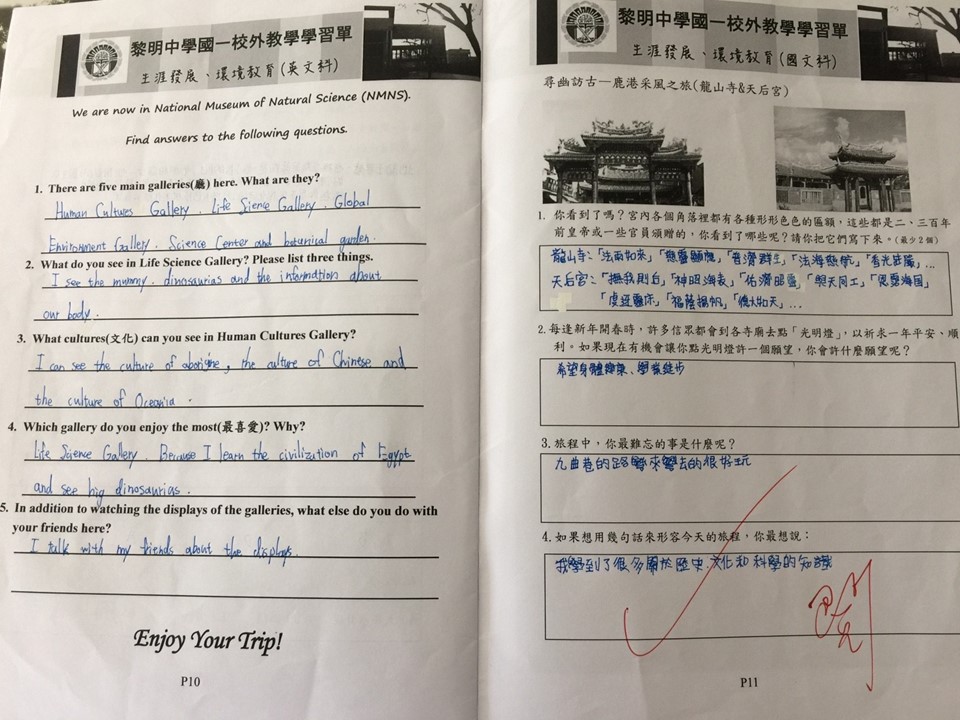 黎明中學國一校外教學學習單
生涯發展、環境教育(英文科)
We are now in National Museum of Natural Science (NMNS).
Find answers to the following questions.
1. There are five main galleries(廳) here. What are they?
Human Cultures Gallery. Life Sience Gallery. Global
Environment Gallery. Science Center and botanical garden.
2. What do you see in Life Science Gallery? Please list three things.
I see the mummy. dinosaurias and the information about
our body.
3. What cultures(文化) can you see in Human Cultures Gallery?
I can see the culture of aborigine, the culture of Chinese and
the culture of Oceania.
4. Which gallery do you enjoy the most(最喜愛)? Why?
Life Science Gallery. Because I learn the civilization of Egypt
and see big dinosaurias.
5. In addition to watching the displays of the galleries, what else do you do with
your friends here?
I talk with my friends about the displays.
Enjoy Your Trip!
P10
黎明中學國一校外教學學習單
生涯發展、環境教育(國文科)
尋幽訪古—鹿港采風之旅(龍山寺&天后宮)
1. 你看到了嗎?宮內各個角落裡都有各種形形色色的匾額,這些都是二、三百年
前皇帝或一些官員頒贈的,你看到了哪些呢?請你把它們寫下來。(最少2個)
龍山寺:「法雨如來」「慈靈顯應」「普濟群生」「法海慈航」「香光莊嚴」...
天后宮:「撫我則后」「神昭海表」「佑濟昭靈」「與天同工」「恩霑海國」
「福蔭揚帆」...
2. 每逢新年開春時,許多信眾都會到各寺廟去點「光明燈」,以祈求一年平安、順
利。如果現在有機會讓你點光明燈許一個願望,你會許什麼願望呢?
希望身體健康、學業進步
3. 旅程中,你最難忘的事是什麼呢?
九曲巷的路彎來彎去的很好玩
4. 如果想用幾句話來形容今天的旅程,你最想說:
我學到了很多關於歷史、文化和科學的知識
閱
P11